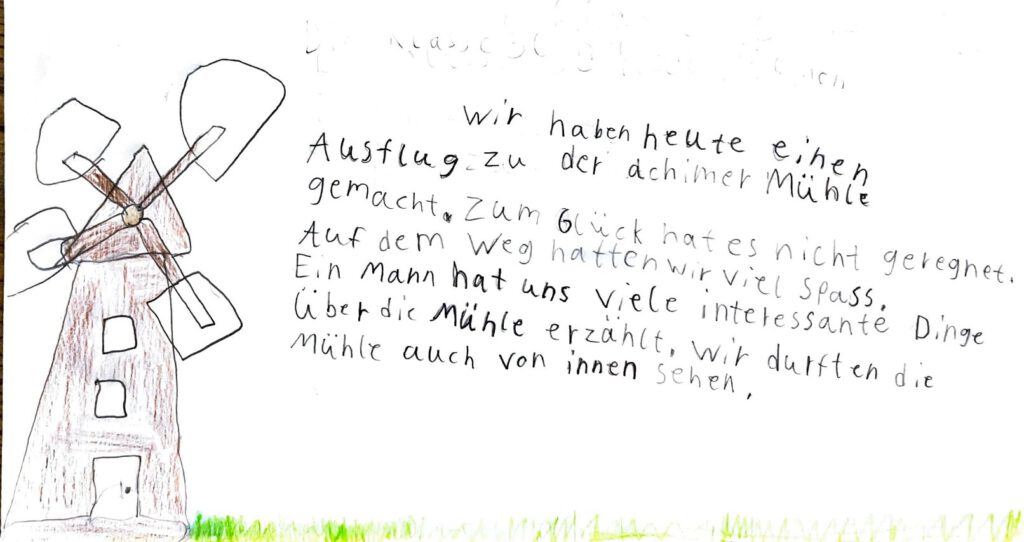 Klasse
Wir haben heute einen
Ausflug zu der achimer Mühle
gemacht. Zum Glück hat es nicht geregnet.
Auf dem Weg hatten wir viel spass.
Ein Mann hat uns viele interessante Dinge
Über die Mühle erzählt. Wir durften die
Mühle auch von innen sehen.